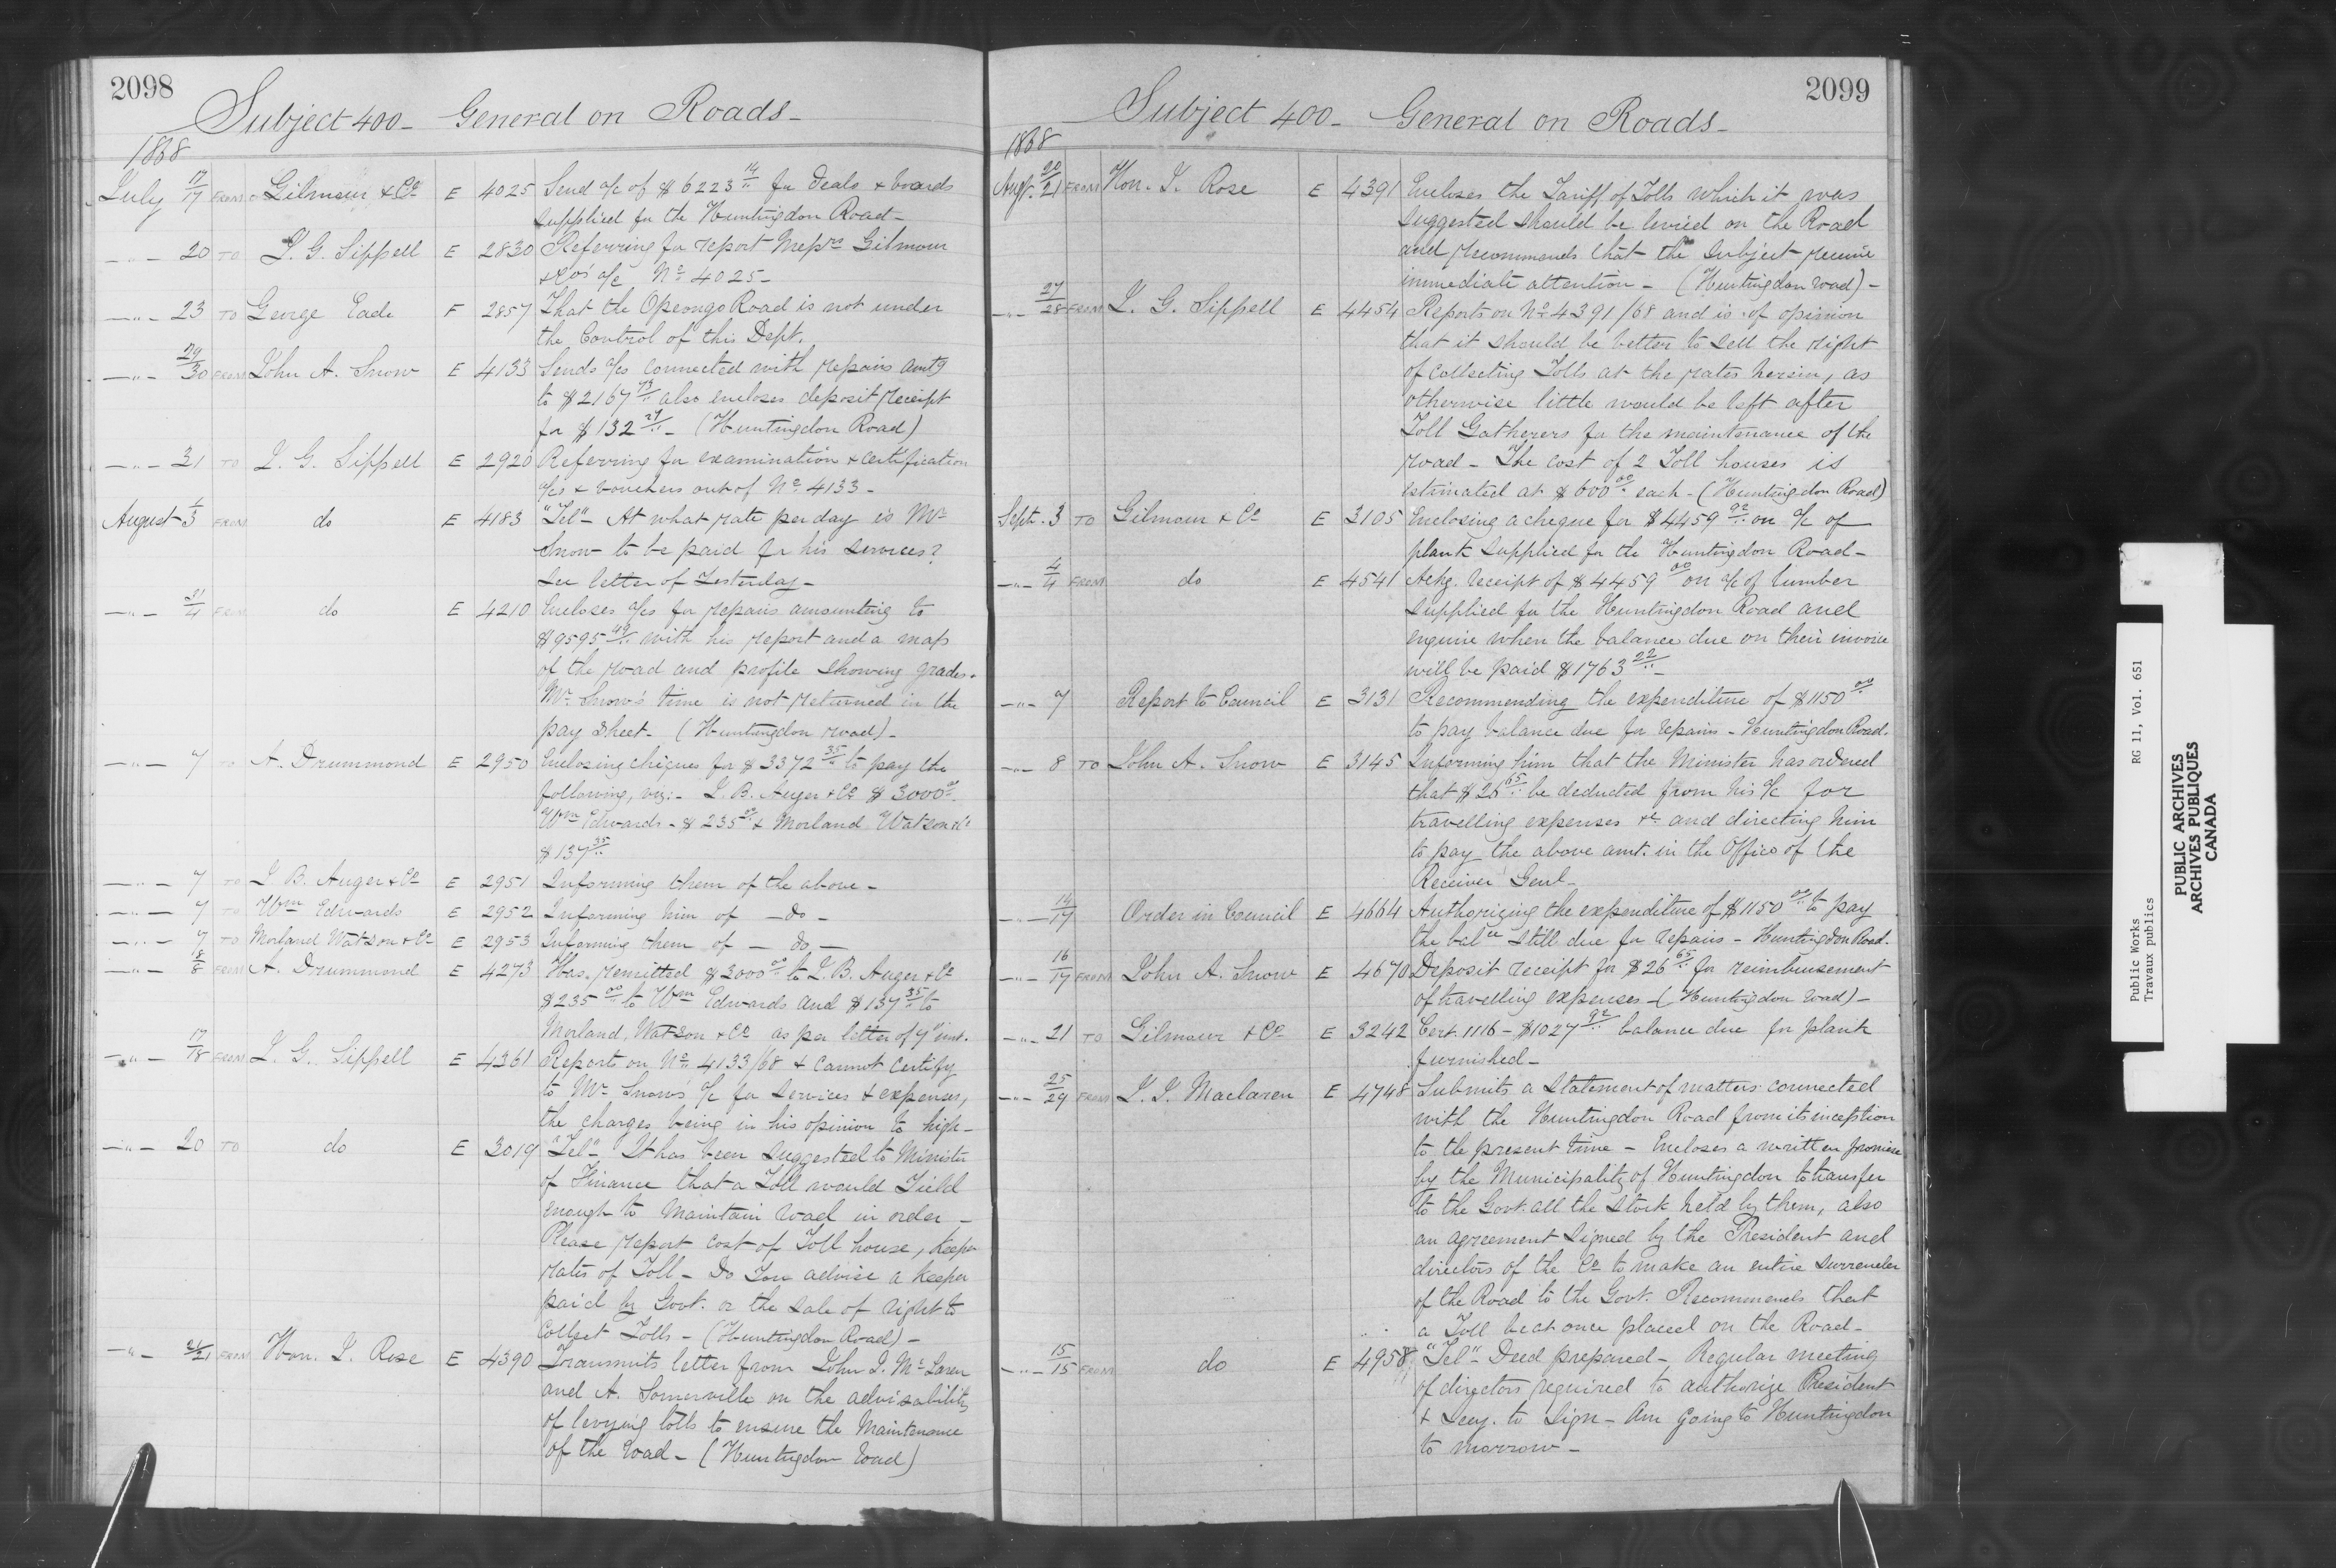 2098
Subject 400 - General on Roads -
1868
July 17/17 FROM Gilmour & Co E 4025 Send a/c of $6223 14/.. for deals & boards
supplied for the Huntingdon Road -
-"- 20 TO T. G. Sippell E 2830 Referring for report Messrs Gilmour
& Cos a/c No 4025 -
-"- 23 TO George Eade F 2857 That the Opeongo Road is not under
the Control of this Dept.
-"- 29/30 FROM John A. Snow E 4133 Sends a/cs connected with repairs amtg
to $2167 73/.. also encloses deposit receipt
for $132 27/.. - (Huntingdon Road)
-"- 31 TO T. G. Sippell E 2920 Referring for examination & certification
a/cs & vouchers out of No 4133 -
August 1/3 FROM do E 4183 "Tel" - At what rate per day is Mr
Snow to be paid for his services?
See letter of Yesterday -
-"- 31/4 FROM do E 4210 Encloses a/cs for repairs amounting to
$9595 49/.. with his report and a map
of the road and profile showing grades.
Mr Snow's time is not returned in the
pay sheet - (Huntingdon road) -
-"- 7 TO A. Drummond E 2950 Enclosing cheques for $3372 35/.. to pay the
following, viz: - L. B. Auger & Co $3000 00/..
Wm Edwards - $235 00/.. & Morland Watson &Co
$137 35/..
-"- 7 TO L B. Auger & Co E 2951 Informing them of the above -
-"- 7 TO Wm Edwards E 2952 Informing him of - do -
-"- 7 TO Morland Watson & Co E 2953 Informing them of - do -
-"- 8/8 FROM A. Drummond E 4273 Has remitted $3000 00/.. to L. B. Auger & Co
$235 00/.. to Wm Edwards and $137 35/.. to
Morland, Watson & Co as per letter of 7" inst.
-"- 17/18 FROM T. G. Sippell E 4361 Reports on No 4133/68 & cannot certify
to Mr Snow's a/c for services & expenses,
the charges being in his opinion to high -
-"- 20 TO do E 3019 "Tel" - It has been suggested to Minister
of Finance that a Toll would Yield
enough to maintain road in order -
Please report cost of Toll house, Keeper
rates of Toll - Do You advise a Keeper
paid by Govt. or the sale of right to
Collect Tolls - (Huntingdon Road) -
-"- 21/21 FROM Hon. J. Rose E 4390 Transmits letter from John J. McLaren
and A. Somerville on the advisability
of levying tolls to ensure the Maintenance
of the road - (Huntingdon road)
2099
Subject 400 - General on Roads -
1868
Augt. 20/21 FROM Hon. J. Rose E 4391 Encloses the Tariff of Tolls which it was
suggested should be levied on the Road
and recommends that the subject receive
immediate attention - (Huntingdon road) -
-"- 27/28 FROM T. G. Sippell E 4454 Reports on No 4391/68 and is of opinion
that it should be better to sell the right
of collecting Tolls at the rates herein, as
otherwise little would be left after
Toll Gatherers for the maintenance of the
road - The cost of 2 Toll houses is
estimated at $600 00/.. each - (Huntingdon Road)
Sept. 3 TO Gilmour & Co E 3105 Enclosing a cheque for $4459 92/.. on a/c of
plank supplied for the Huntingdon Road -
-"- 4/4 FROM do E 4541 Ackg. receipt of $4459 00/.. on a/c of lumber
supplied for the Huntingdon Road and
enquire when the balance due on their invoice
will be paid $1763 22/.. -
-"- 7 Report to Council E 3131 Recommending the expenditure of $1150 00/..
to pay balance due for repairs - Huntingdon Road.
-"- 8 TO John A. Snow E 3145 Informing him that the Minister has ordered
that $26 65/.. be deducted from his a/c for
travelling expenses &c and directing him
to pay the above amt. in the Office of the
Receiver Genl -
-"- 14/17 Order in Council E 4664 Authorizing the expenditure of $1150 00/.. to pay
the balce still due for repairs - Huntingdon Road.
-"- 16/17 FROM John A. Snow E 4670 Deposit receipt for $26 65/.. for reimbursement
of travelling expenses - (Huntingdon road) -
-"- 21 TO Gilmour & Co E 3242 Cert. 1116 - $1027 92/.. balance due for plank
furnished -
-"- 25/29 FROM J. J. Maclaren E 4748 Submits a statement of matters connected
with the Huntingdon Road from its inception
to the present time - Encloses a written promise
by the Municipality of Huntingdon to transfer
to the Govt. all the stock held by them, also
an agreement signed by the President and
directors of the Co to make an entire surrender
of the Road to the Govt. Recommends that
a Toll be at once placed on the Road -
-"- 15/15 FROM do E 4958 "Tel" - Deed prepared - Regular meeting
of directors required to authorize President
& Secy. to sign - Am going to Huntingdon
to morrow -
Public Works RG 11, Vol. 651
Travaux publics
PUBLIC ARCHIVES
ARCHIVES PUBLIQUES
CANADA